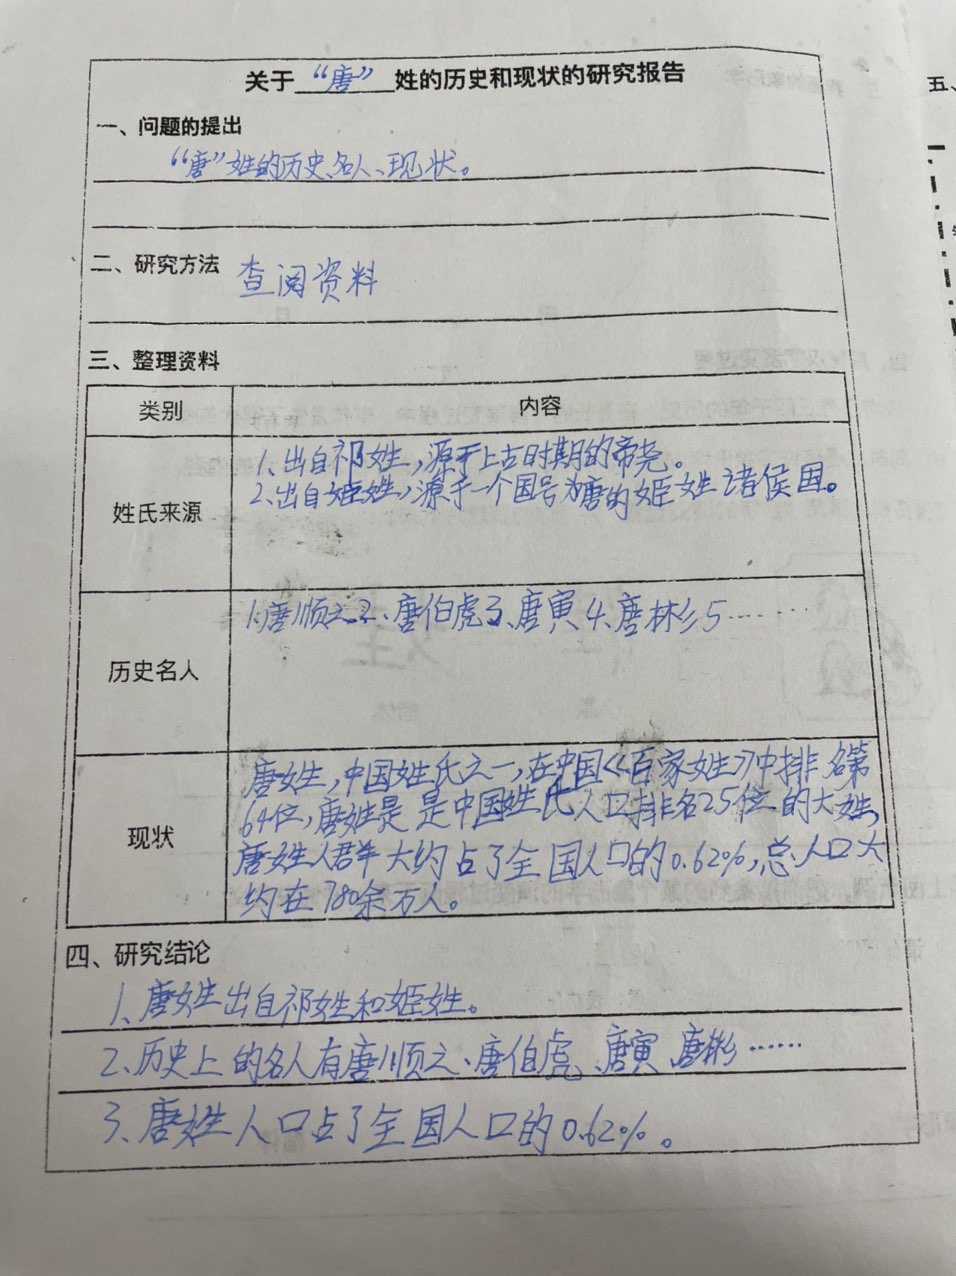 关于“唐”姓的历史和现状的研究报告
一、问题的提出
“唐”姓的历史名人、现状。
二、研究方法 查阅资料
三、整理资料
类别 内容
姓氏来源
1、出自祁姓,源于上古时期的帝尧。
2、出自姬姓,源于一个国号为唐的姬姓诸侯国。
历史名人
1、唐顺之2、唐伯虎3、唐寅4、唐林彡5……
现状
唐姓,中国姓氏之一,在中国《百家姓》中排名第
64位,唐姓是是中国姓氏人口排名25位的大姓,
唐姓人群大约占了全国人口的0.62%,总人口大
约在780余万人。
四、研究结论
1、唐姓出自祁姓和姬姓。
2、历史上的名人有唐顺之、唐伯虎、唐寅、唐彬……
3、唐姓人口占了全国人口的0.62%。
五、